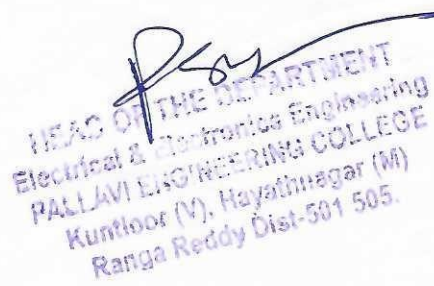 HEAD OF THE DEPARTMENT
Electrical & Electronics Engineering
PALLAVI ENGINEERING COLLEGE
Kuntloor (V), Hayathnagar (M)
Ranga Reddy Dist-501 505.